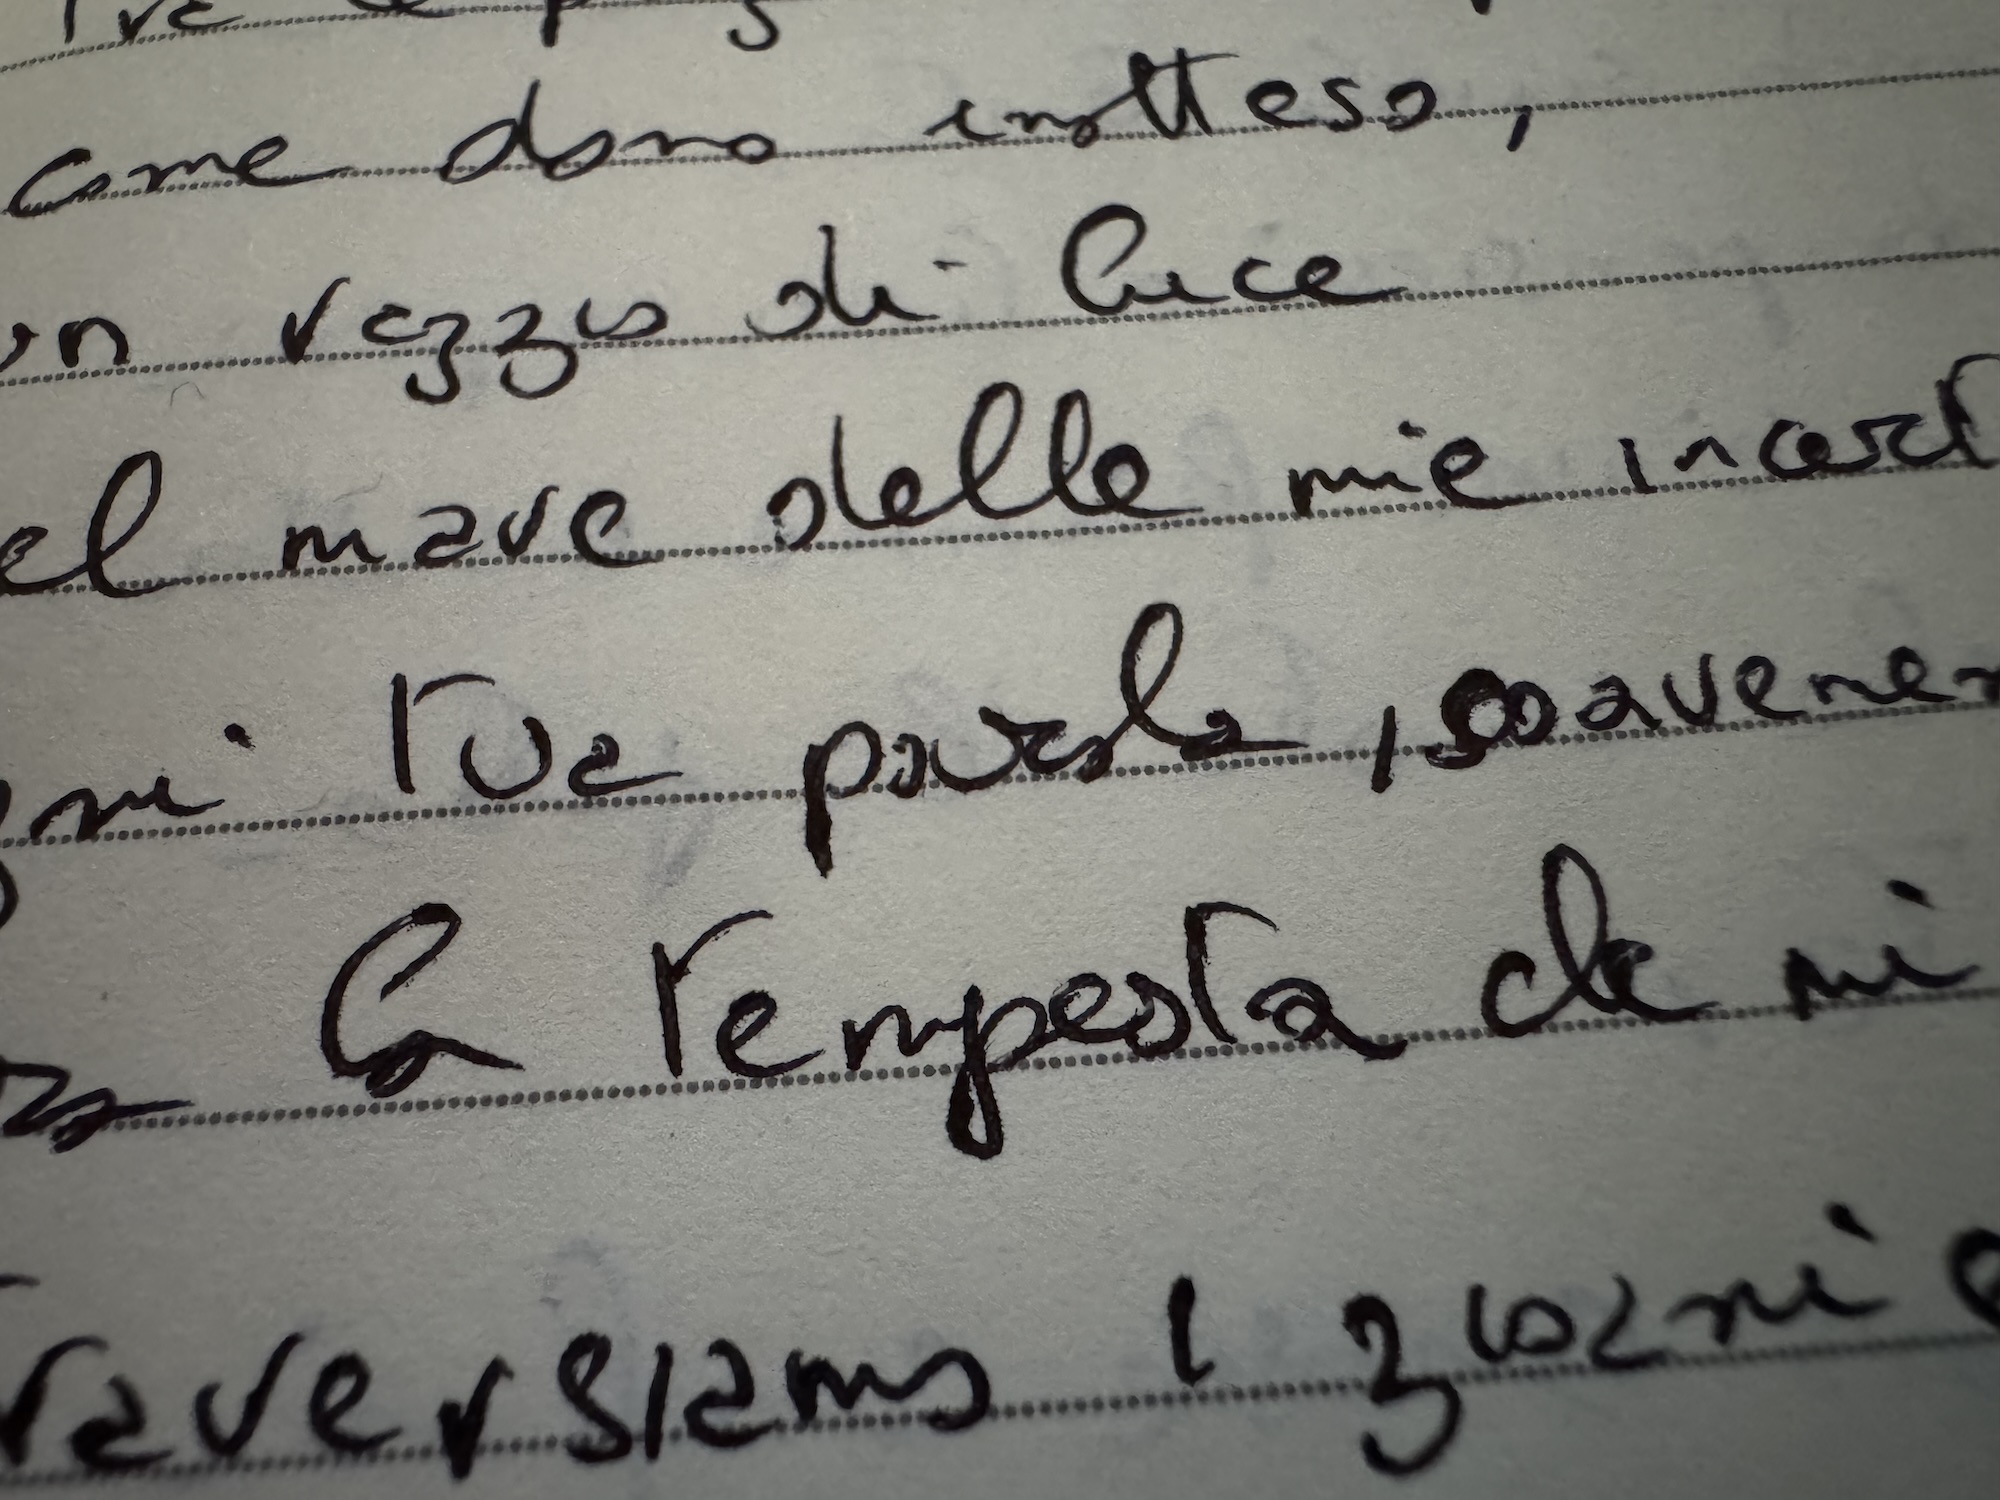 come dono inatteso,
un raggio di luce
el mare delle mie incert
gni tua parola, soavemen
la tempesta che mi
raversiamo i giorni e